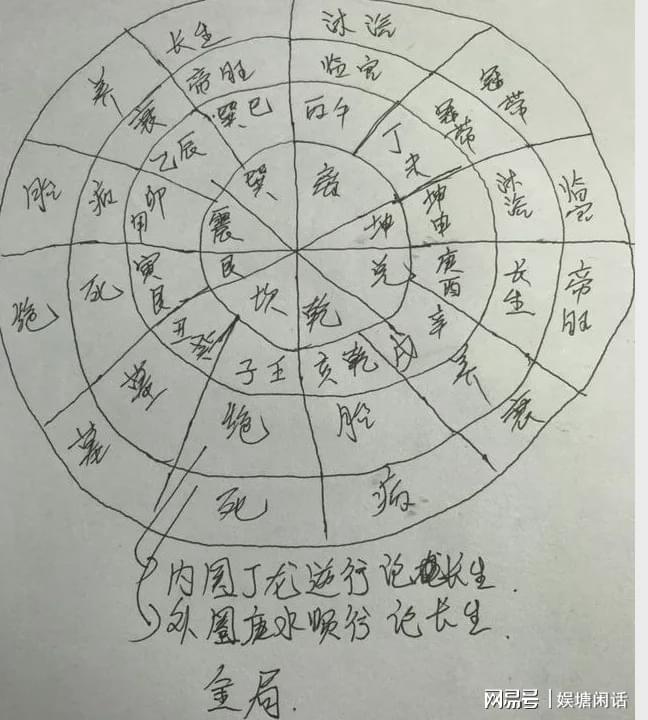 长生 沐浴
养 帝旺 临官 冠带
衰 巽巳 丙午 冠带
乙辰 丁未
胎 病 卯甲 巽 离 坤申 沐浴 临官
震 坤
绝 死 寅艮 艮 兑 庚酉 长生 帝旺
坎 乾 辛
丑癸 戌
墓 墓 子壬 亥乾 养 衰
绝 胎
死 病
内圈丁龙逆行论长生.
外圈庚水顺行论长生.
金局.
网易号 | 娱塘闲话